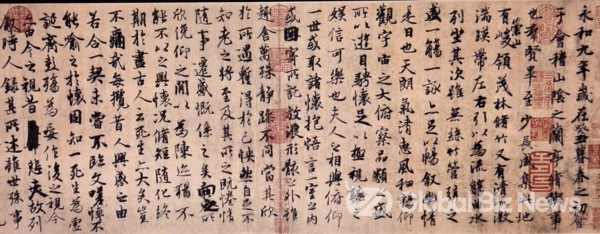 永和九年歲在癸丑暮春之初會
于會稽山陰之蘭亭脩稧事
也群賢畢至少長咸集此地
有崇山峻領茂林脩竹又有清流激
湍暎帶左右引以為流觴曲水
列坐其次雖無絲竹管弦之
盛一觴一詠亦足以暢叙幽情
是日也天朗氣清惠風和暢仰
觀宇宙之大俯察品類之盛
所以遊目騁懷足以極視聽之
娛信可樂也夫人之相與俯仰
一世或取諸懷抱悟言一室之內
或因寄所託放浪形骸之外雖
趣舍萬殊静躁不同當其欣
於所遇暫得於己怏然自足不
知老之將至及其所之既惓情
隨事遷感慨係之矣向之所
欣俛仰之閒以為陳迹猶不
能不以之興懷況脩短隨化終
期於盡古人云死生亦大矣豈
不痛哉每攬昔人興感之由
若合一契未嘗不臨文嗟悼不
能喻之於懷固知一死生為虛
誕齊彭殤為妄作後之視今
亦由今之視昔悲夫故列
叙時人錄其所述雖世殊事
Global Biz News